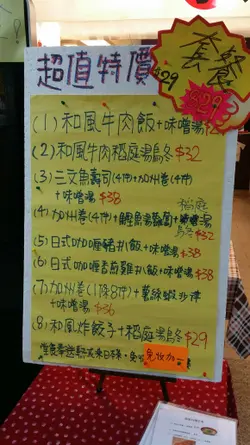 超值特價
套餐
$29
$29
(1) 和風牛肉飯+味噌湯
(2) 和風牛肉稻庭湯烏冬 $32
(3) 三文魚壽司(4件)+加州卷(4件)
+味噌湯 $38
(4) 加州卷(4件)+ 稻庭
烏冬 $32
(5) 日式咖喱豬扒飯+味噌湯 $38
(6) 日式咖喱吉列雞扒飯+味噌湯 $38
(7) 加州卷(1條8件)+
+味噌湯 $36
(8) 和風炸餃子+稻庭湯烏冬 $29
免收加一